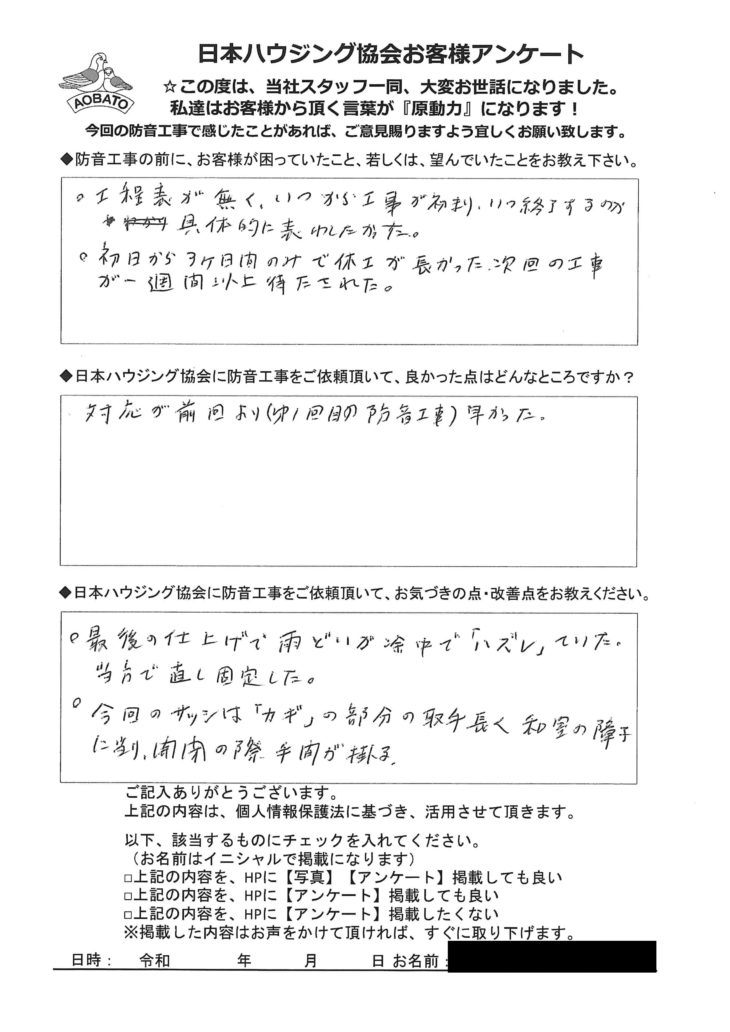 AOBATO
日本ハウジング協会お客様アンケート
☆この度は、当社スタッフ一同、大変お世話になりました。
私達はお客様から頂く言葉が『原動力』になります！
今回の防音工事で感じたことがあれば、ご意見賜りますよう宜しくお願い致します。
◆防音工事の前に、お客様が困っていたこと、若しくは、望んでいたことをお教え下さい。
○工程表が無く、いつから工事が初まり、いつ終了するのか
具体的に表わしたかった。
○初日から3ケ日間のみで休工が長かった、次回の工事
が一週間以上待たされた。
◆日本ハウジング協会に防音工事をご依頼頂いて、良かった点はどんなところですか？
対応が前回より(1回目の防音工事)早かった。
◆日本ハウジング協会に防音工事をご依頼頂いて、お気づきの点・改善点をお教えください。
○最後の仕上げで雨どいが途中で「ハズレ」ていた。
当方で直し固定した。
○今回のサッシは「カギ」の部分の取手長く和室の障子
に当り、開閉の際手間が掛る。
ご記入ありがとうございます。
上記の内容は、個人情報保護法に基づき、活用させて頂きます。
以下、該当するものにチェックを入れてください。
（お名前はイニシャルで掲載になります）
□上記の内容を、HPに【写真】【アンケート】掲載しても良い
□上記の内容を、HPに【アンケート】掲載しても良い
□上記の内容を、HPに【アンケート】掲載したくない
※掲載した内容はお声をかけて頂ければ、すぐに取り下げます。
日時： 令和 年 月 日 お名前：